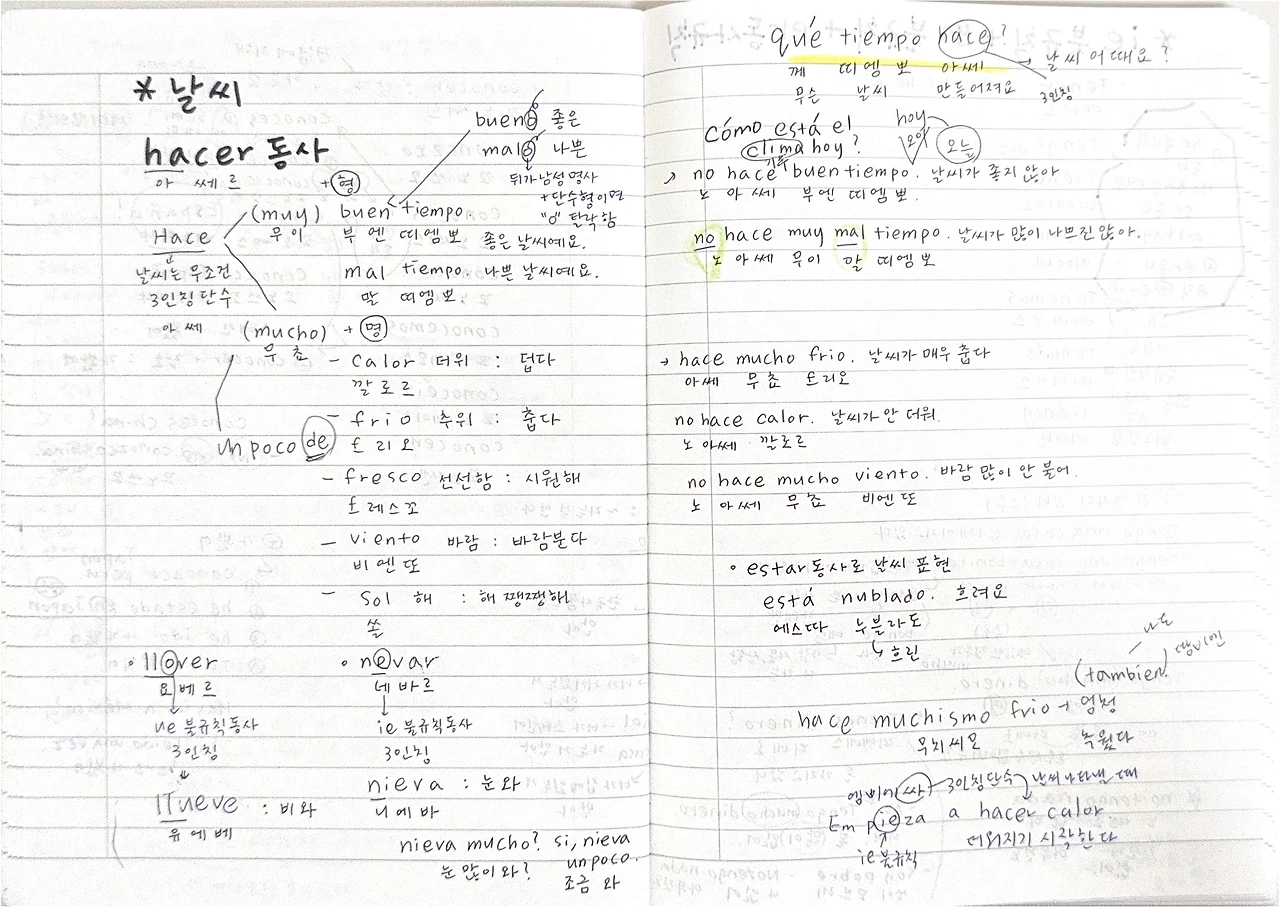 * 날씨
hacer 동사
아 쎄 르
bueno 좋은
malo 나쁜
뒤가 남성 명사
+단수형이면
"o" 탈락함
+형
(muy) buen tiempo
무이 부엔 띠엠뽀 좋은 날씨예요.
Hace
날씨는 무조건
3인칭 단수
아 쎄
mal tiempo 나쁜 날씨예요.
말 띠엠뽀.
(mucho) + 명
무쵸
un poco de
- calor 더위 : 덥다
깔로르
- frio 추위 : 춥다
프리오
- fresco 선선함 : 시원해
프레스꼬
- viento 바람 : 바람분다
비엔또
- Sol 해 : 해 쨍쨍해
쏠
• llover
요베르
ue 불규칙동사
3인칭
llueve : 비와
유에베
• nevar
네바르
ie 불규칙동사
3인칭
nieva : 눈와
니에바
nieva mucho? si, nieva un poco.
눈 많이 와? 조금 와
qué tiempo hace? → 날씨 어때요?
께 띠엠뽀 아쎄
무슨 날씨 만들어져요
3인칭
cómo está el
clima hoy?
기후
hoy
오이
오늘
no hace buen tiempo. 날씨가 좋지 않아
노 아쎄 부엔 띠엠뽀.
no hace muy mal tiempo. 날씨가 많이 나쁘진 않아.
노 아쎄 무이 말 띠엠뽀
→ hace mucho frio. 날씨가 매우 춥다
아쎄 무쵸 프리오
no hace calor. 날씨가 안 더워.
노 아쎄 깔로르
no hace mucho viento. 바람 많이 안 불어.
노 아쎄 무쵸 비엔또
• estar동사로 날씨 표현
está nublado. 흐려요
에스따 누블라도
흐린
나도
(tambien) 땀비엔
hace muchismo frio → 엄청
무치씨모 추웠다
엠삐에싸 3인칭단수 날씨 나타낼 때
Empieza a hacer calor
ie불규칙 더워지기 시작한다